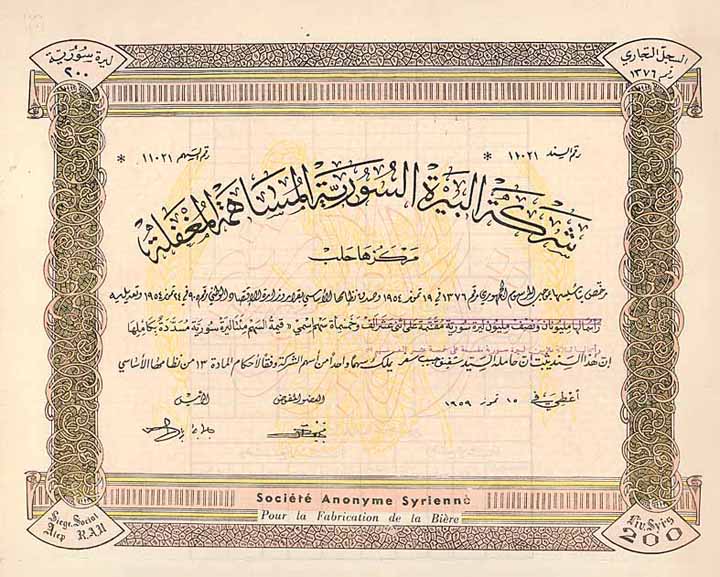 السجل التجاري
رقم ١٣٧٦
ليرة سورية
٢٠٠
رقم السند ١١٠٢١ *
رقم السهم ١١٠٢١ *
شركة البيرة السورية المساهمة المغفلة
مركزها حلب
مرخص بتأسيسها بموجب المرسوم الجمهوري رقم ١٣٧٦ في ١٩ تموز ١٩٥٤ وصدق نظامها الأساسي بقرار وزارة الاقتصاد الوطني رقم ٩٠٠ في تموز ١٩٥٤ وتعديله
رأسمالها مليونان ونصف مليون ليرة سورية مقسمة على اثني عشر الف وخمسمأة سهم اسمي « قيمة السهم مئتا ليرة سورية مسددة بكاملها
إن هذا السند يثبت ان حامله السيد شفيق حبيب سفر يملك سهما واحدا من أسهم الشركة وفقا لأحكام المادة ١٣ من نظامها الأساسي
أعطي في ١٥ تموز ١٩٥٩
العضو المفوض
الأمين
Société Anonyme Syrienne
Pour la Fabrication de la Bière
Siège Social
Alep R.A.U
Liv. Syrs
200